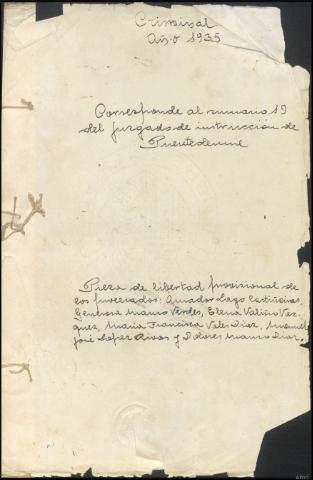 Criminal
Año 1935
Corresponde al sumario 19
del juzgado de instrucción de
Puentedeume
Pieza de libertad provisional de
los procesados: Amador Lago Castiñeiras,
Generosa Mauro Verdes, Elena Valiño Vaz-
quez, María Francisca Vales Diaz, Manuel
José López Rivas y Dolores Mauro Diaz.